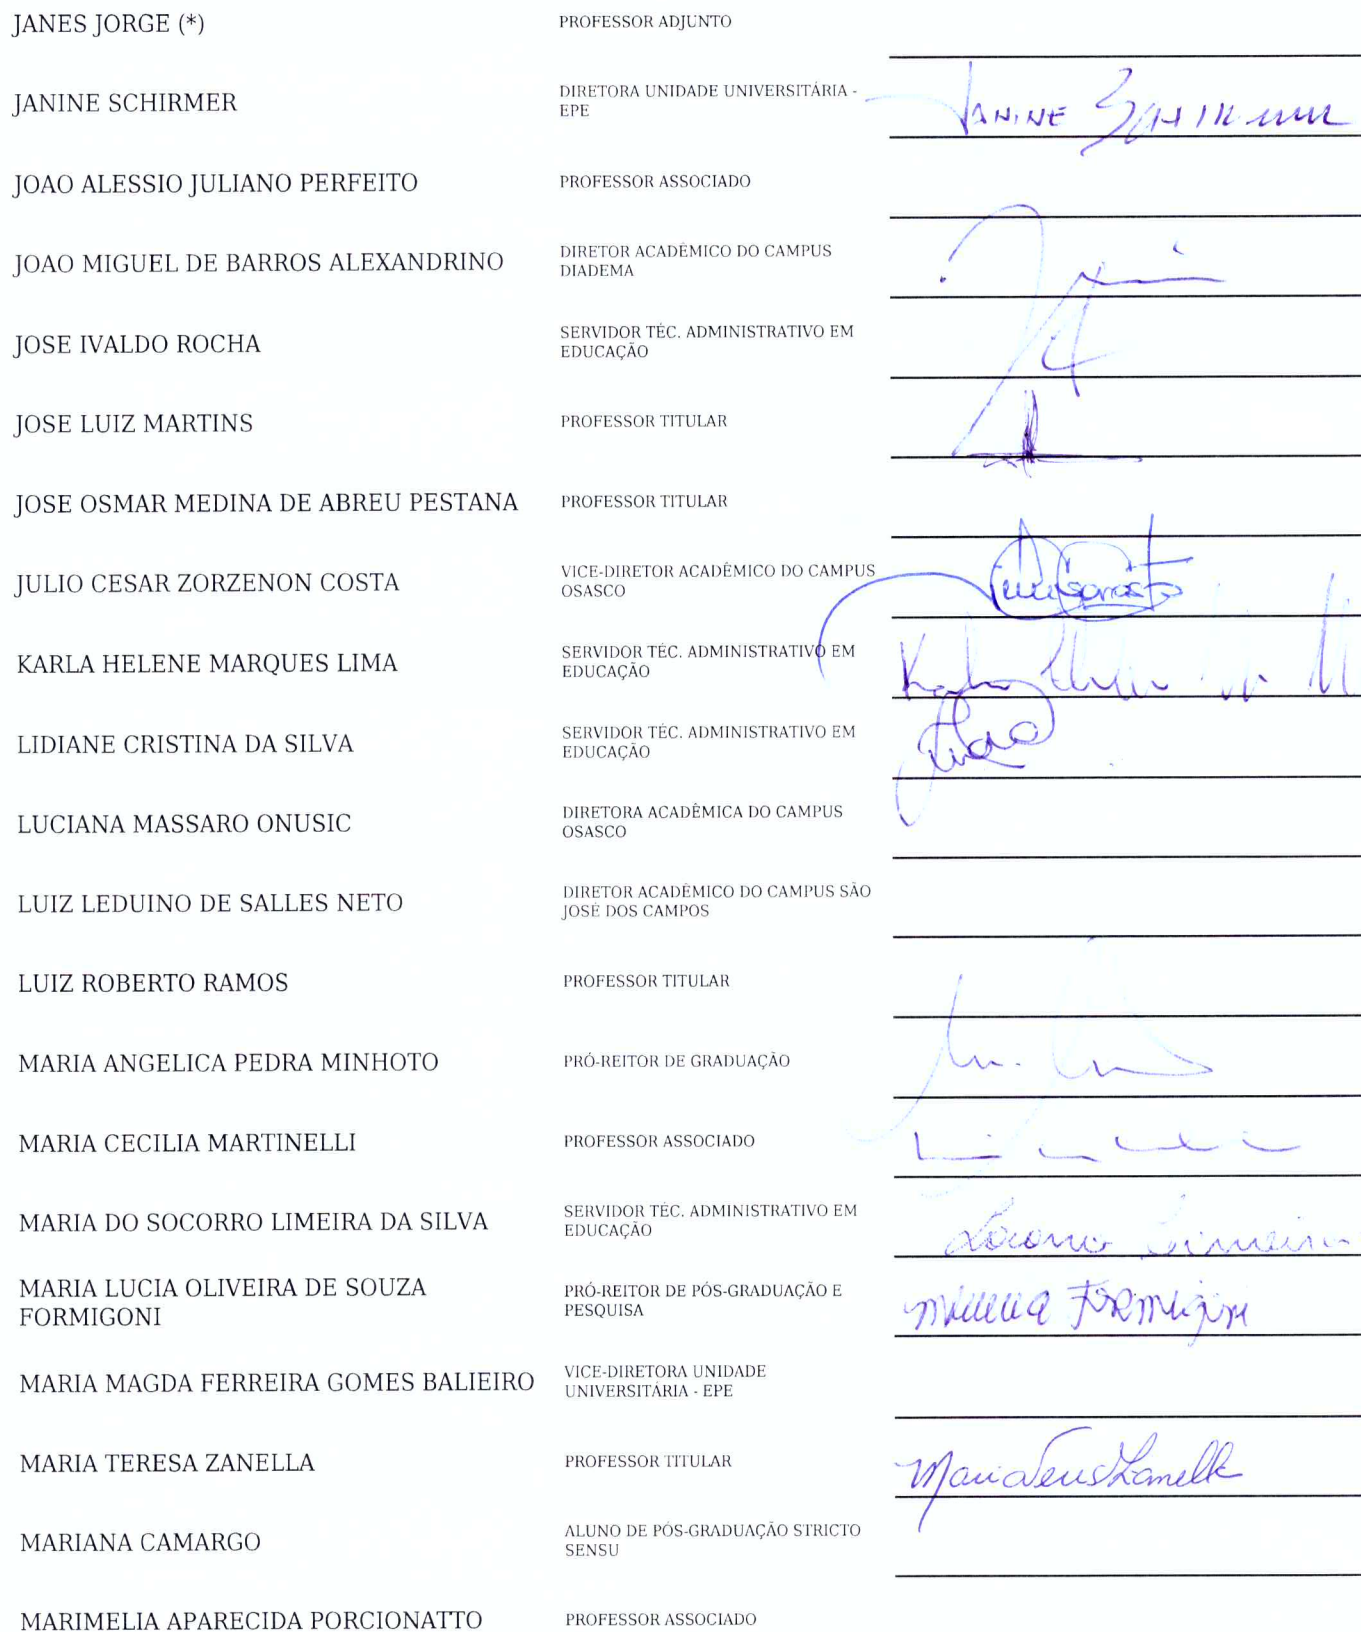 JANES JORGE (*) PROFESSOR ADJUNTO
JANINE SCHIRMER DIRETORA UNIDADE UNIVERSITÁRIA -
EPE
JANINE
JOAO ALESSIO JULIANO PERFEITO PROFESSOR ASSOCIADO
JOAO MIGUEL DE BARROS ALEXANDRINO DIRETOR ACADÊMICO DO CAMPUS
DIADEMA
JOSE IVALDO ROCHA SERVIDOR TÉC. ADMINISTRATIVO EM
EDUCAÇÃO
JOSE LUIZ MARTINS PROFESSOR TITULAR
JOSE OSMAR MEDINA DE ABREU PESTANA PROFESSOR TITULAR
JULIO CESAR ZORZENON COSTA VICE-DIRETOR ACADÊMICO DO CAMPUS
OSASCO
KARLA HELENE MARQUES LIMA SERVIDOR TÉC. ADMINISTRATIVO EM
EDUCAÇÃO
LIDIANE CRISTINA DA SILVA SERVIDOR TÉC. ADMINISTRATIVO EM
EDUCAÇÃO
LUCIANA MASSARO ONUSIC DIRETORA ACADÊMICA DO CAMPUS
OSASCO
LUIZ LEDUINO DE SALLES NETO DIRETOR ACADÊMICO DO CAMPUS SÃO
JOSÉ DOS CAMPOS
LUIZ ROBERTO RAMOS PROFESSOR TITULAR
MARIA ANGELICA PEDRA MINHOTO PRÓ-REITOR DE GRADUAÇÃO
MARIA CECILIA MARTINELLI PROFESSOR ASSOCIADO
MARIA DO SOCORRO LIMEIRA DA SILVA SERVIDOR TÉC. ADMINISTRATIVO EM
EDUCAÇÃO
MARIA LUCIA OLIVEIRA DE SOUZA PRÓ-REITOR DE PÓS-GRADUAÇÃO E
FORMIGONI PESQUISA
MARIA MAGDA FERREIRA GOMES BALIEIRO VICE-DIRETORA UNIDADE
UNIVERSITÁRIA - EPE
MARIA TERESA ZANELLA PROFESSOR TITULAR
MARIANA CAMARGO ALUNO DE PÓS-GRADUAÇÃO STRICTO
SENSU
MARIMELIA APARECIDA PORCIONATTO PROFESSOR ASSOCIADO